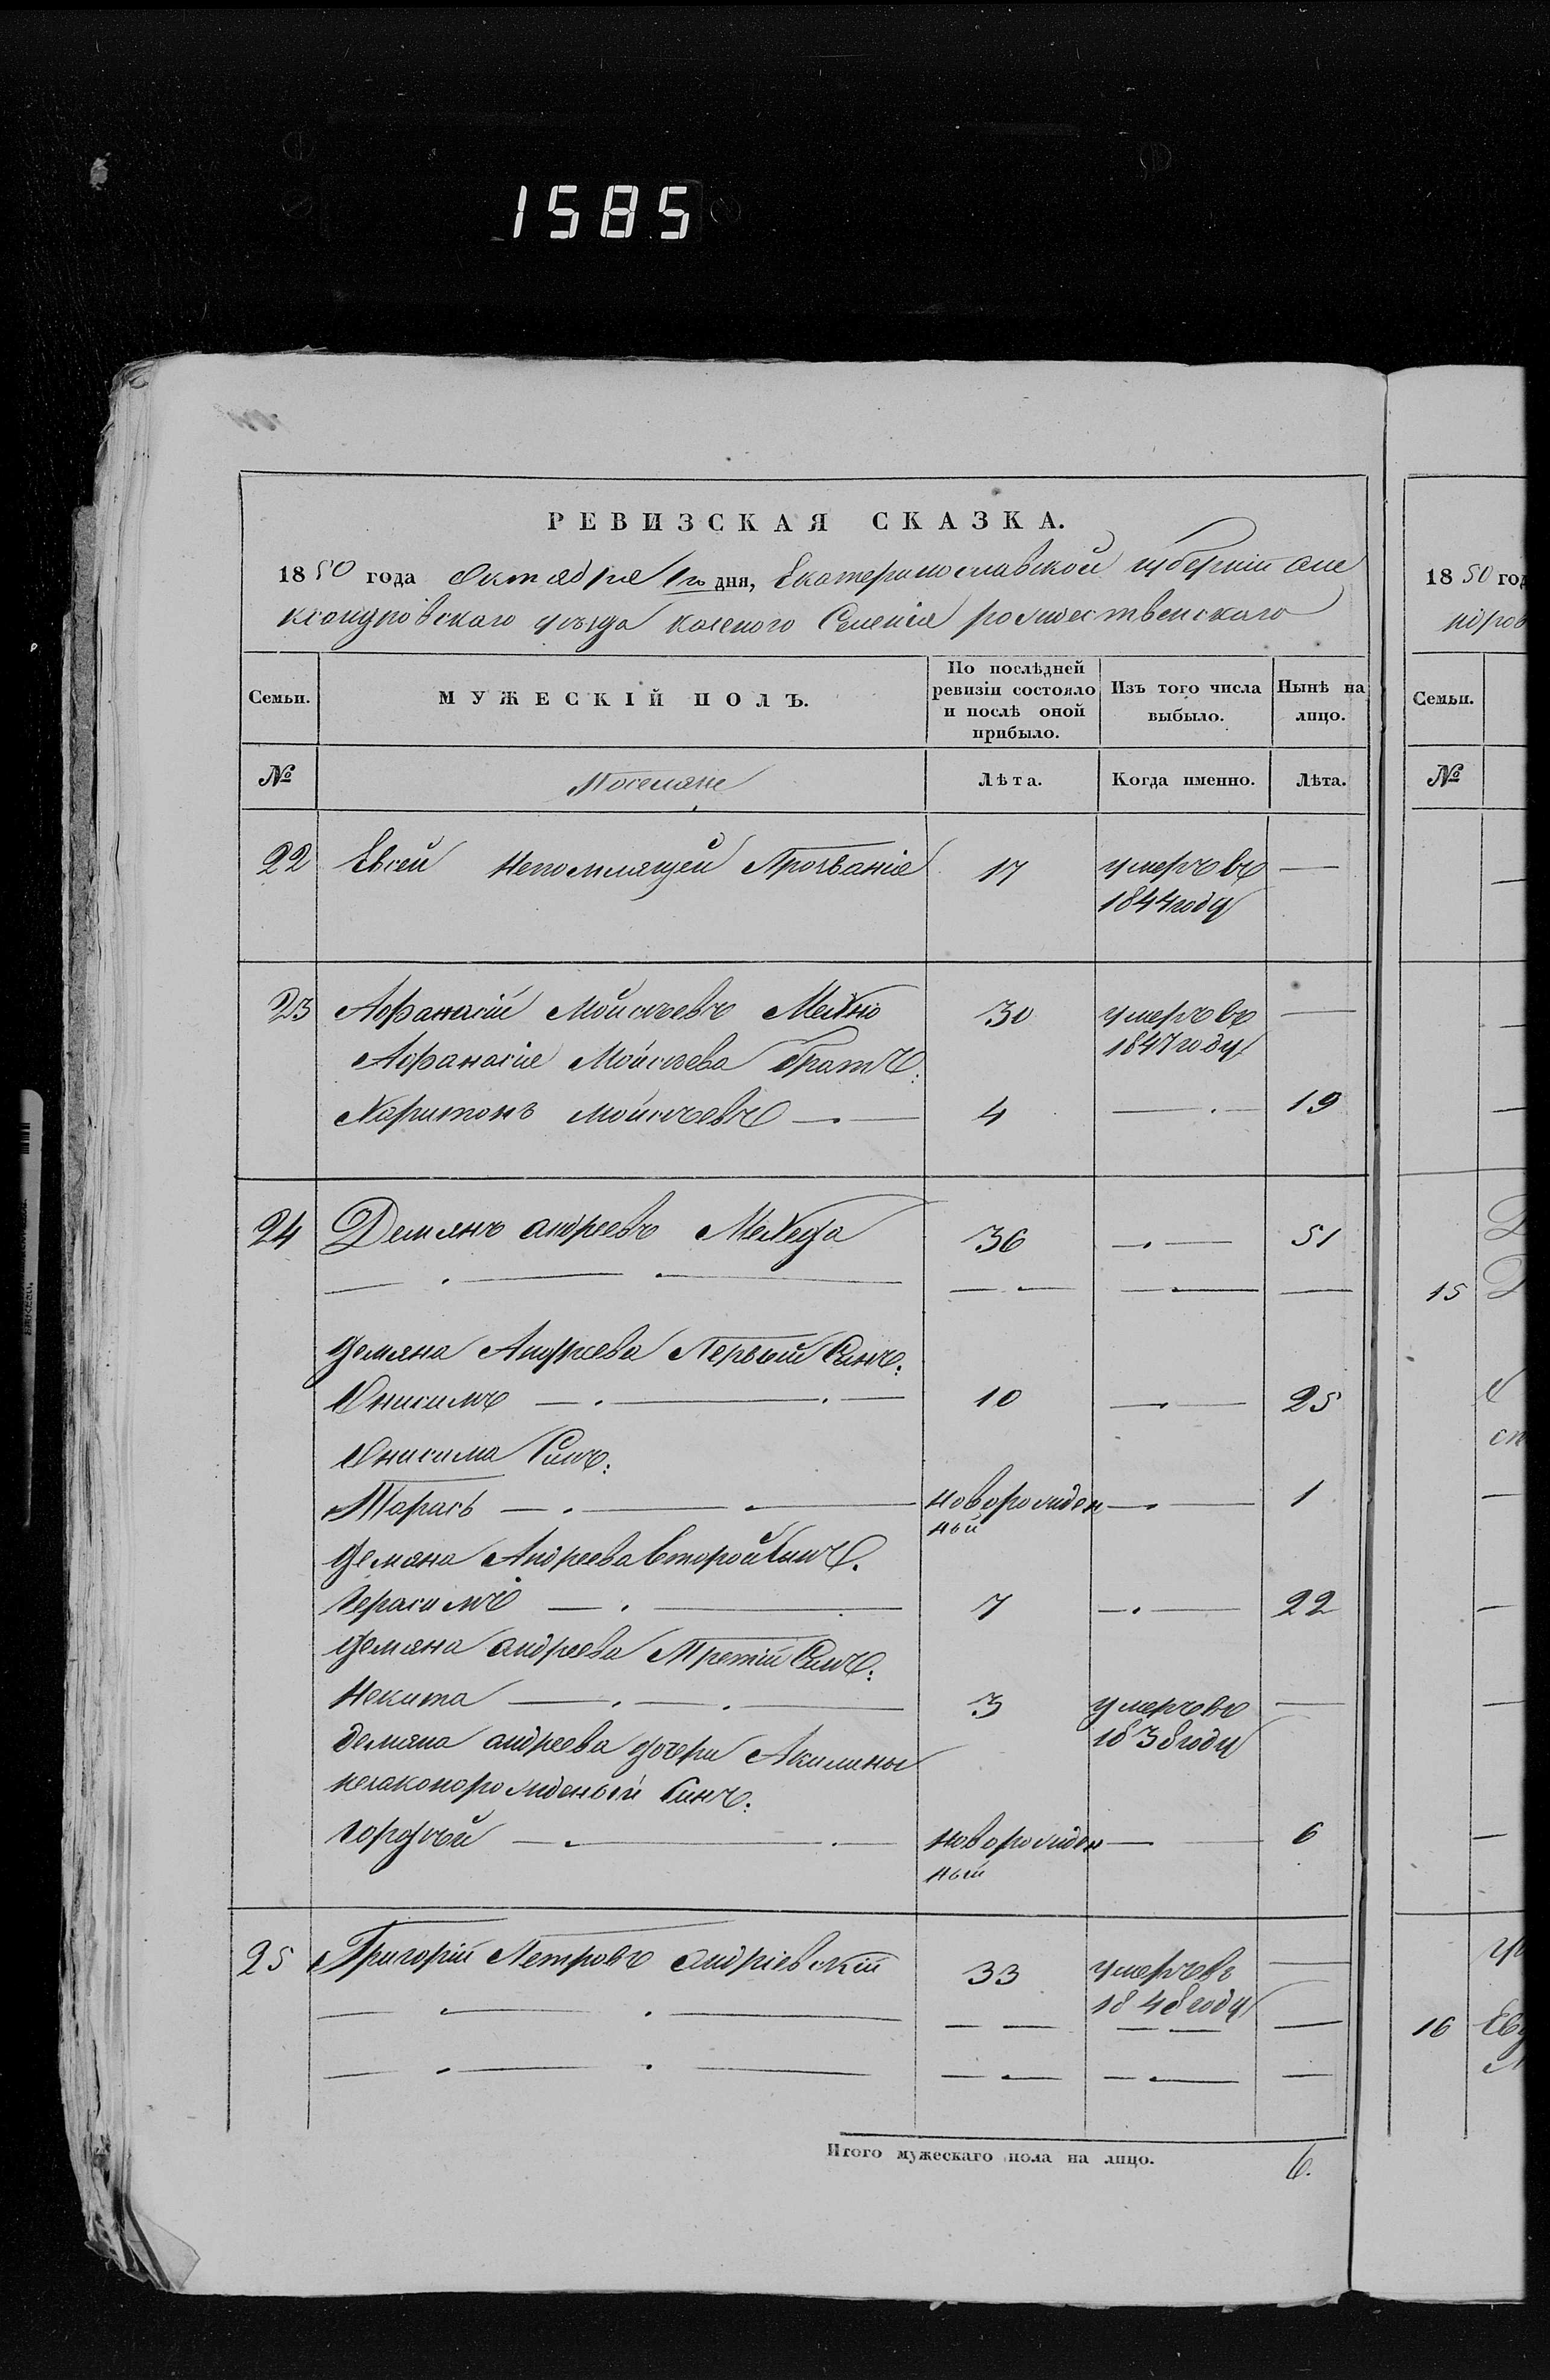 1585
РЕВИЗСКАЯ СКАЗКА.
1850 года Октября 1го дня, Екатеринославской губернии Але
ксандровскаго уезда казеного Селенія рождественскаго
Семьи.
МУЖЕСКІЙ ПОЛЪ.
По послѣдней ревизіи состояло и послѣ оной прибыло.
Изъ того числа выбыло.
Нынѣ на лицо.
№
Поселяне
Лѣта.
Когда именно.
Лѣта.
22 Евсей непомлящей Прозванія 17 умеръ въ —
1844 году
23 Афанасій Мойсѣевъ Махно 30 умеръ въ —
Афанасія Мойсѣева братъ: 1847 году
Харитонъ Мойсѣевъ — 4 — 19
24 Демянъ андреевъ Мехеда 36 — 51
— — — —
Демяна Андреева Первый Синъ:
Онисимъ — 10 — 25
Онисима Синъ:
Тарасъ — новорожден — 1
ный
Демяна Андреева второй Синъ.
Герасимъ — 7 — 22
Демяна андреева Третій Синъ:
Некита — 3 умеръ въ —
демяна андреева дочери Акилины 1838 году
незаконорожденый Синъ:
гордѣй — новорожден — 6
ный
25 Григорій Петровъ андріевскій 33 умеръ въ —
1848 году
— — — —
— — — —
Итого мужескаго пола на лицо. 6.
1850 год
Семьи.
№
15
16